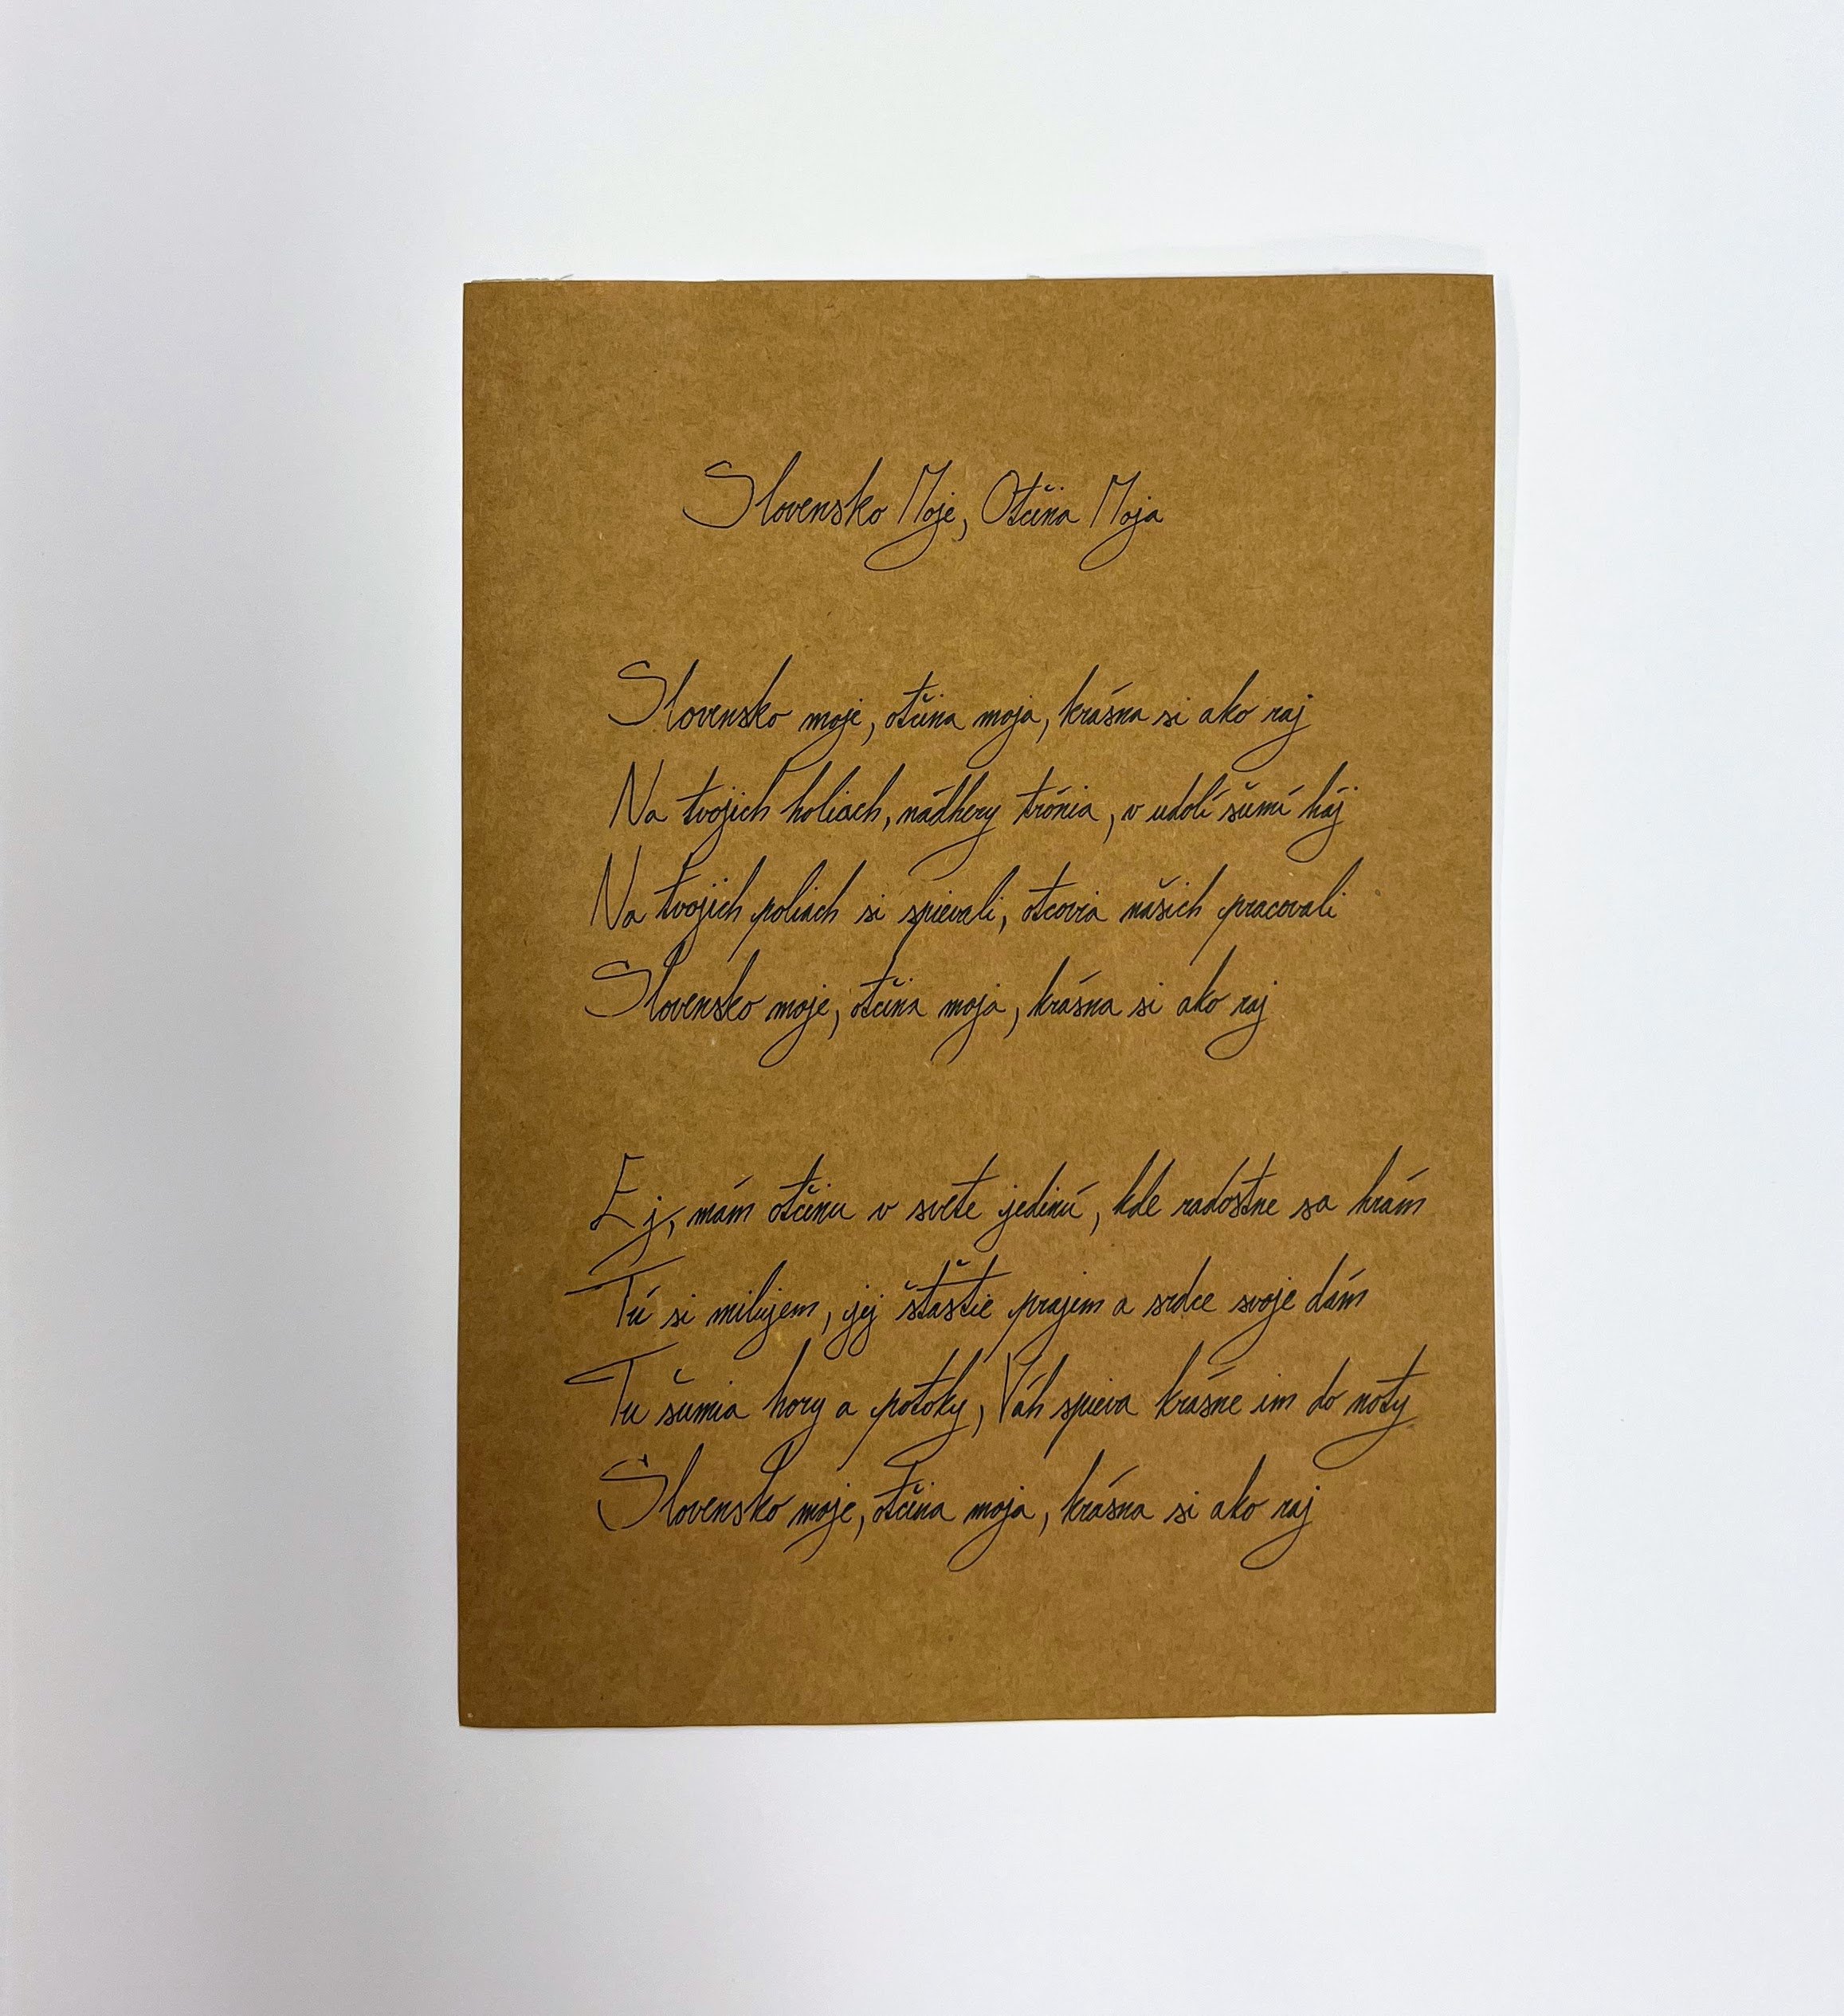 Slovensko Moje, Otčina Moja
Slovensko moje, otčina moja, krásna si ako raj
Na tvojich holiach, nádhery trónia, v udolí šumí háj
Na tvojich poliach si spievali, otcovia našich pracovali
Slovensko moje, otčina moja, krásna si ako raj
Ej, mám otčinu v svete jedinú, kde radostne sa hrám
Tú si milujem, jej šťastie prajem a srdce svoje dám
Tu šumia hory a potoky, Váh spieva krásne im do noty
Slovensko moje, otčina moja, krásna si ako raj